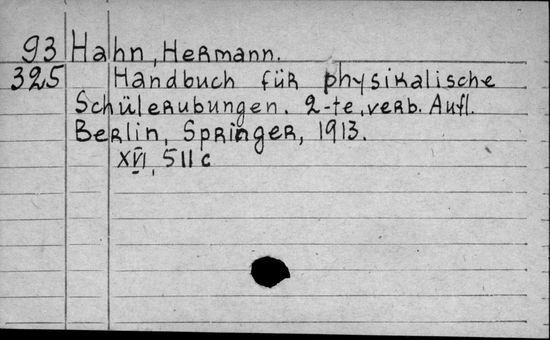 93 Hahn, Hermann.
325 Handbuch für physikalische
Schülerubungen. 2-te, verb. Aufl.
Berlin, Springer, 1913.
XVI, 511 c